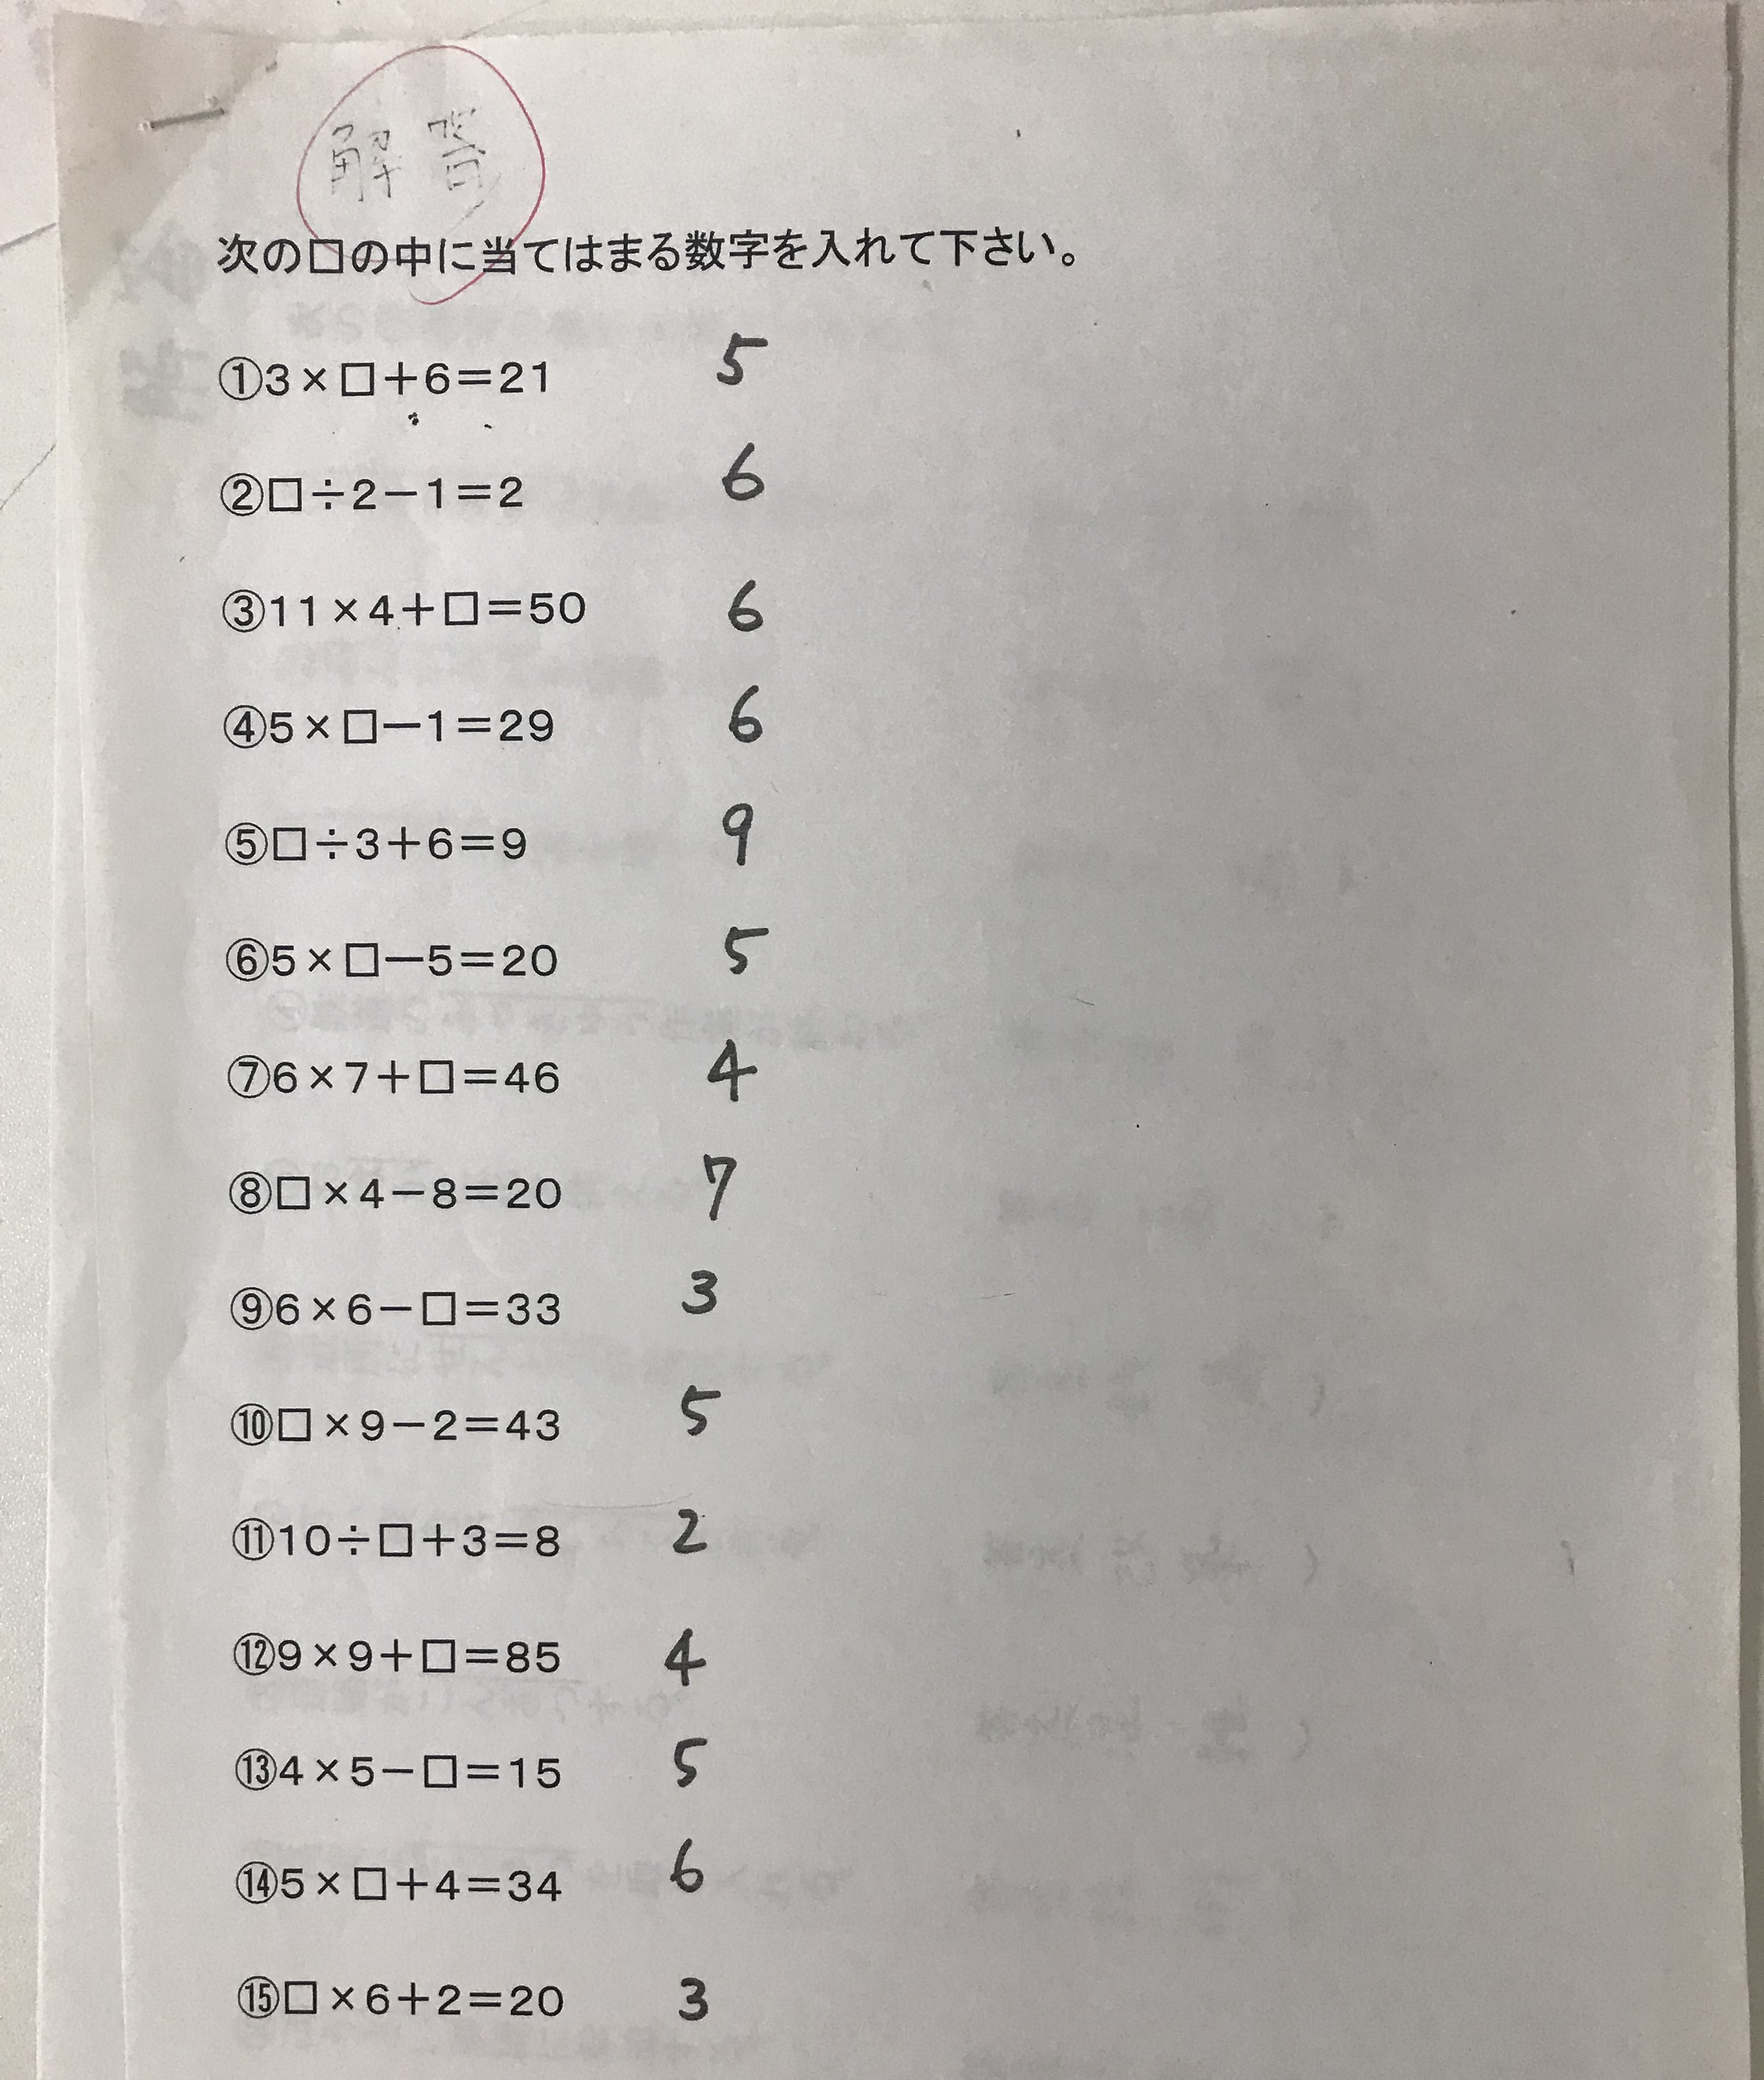 解答
次の□の中に当てはまる数字を入れて下さい。
①3×□+6=21 5
②□÷2-1=2 6
③11×4+□=50 6
④5×□-1=29 6
⑤□÷3+6=9 9
⑥5×□-5=20 5
⑦6×7+□=46 4
⑧□×4-8=20 7
⑨6×6-□=33 3
⑩□×9-2=43 5
⑪10÷□+3=8 2
⑫9×9+□=85 4
⑬4×5-□=15 5
⑭5×□+4=34 6
⑮□×6+2=20 3